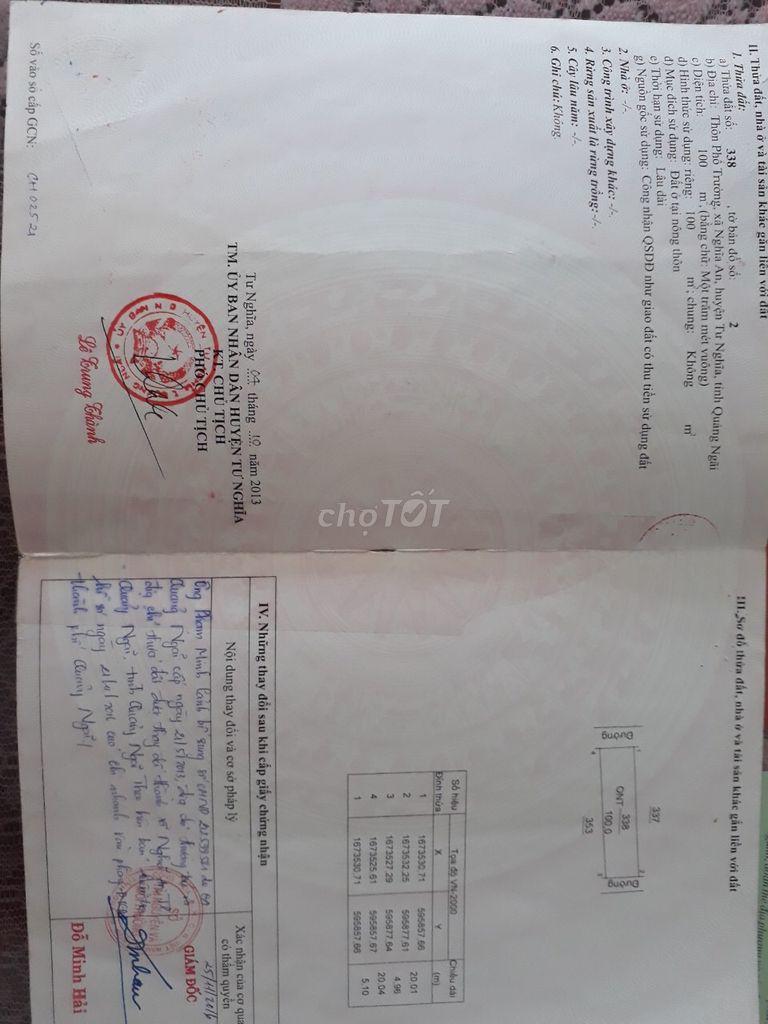 II. Thửa đất, nhà ở và tài sản khác gắn liền với đất
1. Thửa đất:
a) Thửa đất số: 338 , tờ bản đồ số: 2
b) Địa chỉ: Thôn Phổ Trường, xã Nghĩa An, huyện Tư Nghĩa, tỉnh Quảng Ngãi
c) Diện tích: 100 m², (bằng chữ: Một trăm mét vuông)
d) Hình thức sử dụng: riêng: 100 m²; chung: Không m²
đ) Mục đích sử dụng: Đất ở tại nông thôn
e) Thời hạn sử dụng: Lâu dài
g) Nguồn gốc sử dụng: Công nhận QSDĐ như giao đất có thu tiền sử dụng đất
2. Nhà ở: -/-
3. Công trình xây dựng khác: -/-
4. Rừng sản xuất là rừng trồng: -/-
5. Cây lâu năm: -/-
6. Ghi chú: Không
Tư Nghĩa, ngày 04 tháng 10 năm 2013
TM. ỦY BAN NHÂN DÂN HUYỆN TƯ NGHĨA
KT. CHỦ TỊCH
PHÓ CHỦ TỊCH
Lê Trung Thành
Số vào sổ cấp GCN: CH 02521
III. Sơ đồ thửa đất, nhà ở và tài sản khác gắn liền với đất
337
Đường
ONT - 338
100,0
Đường
353
Số hiệu Tọa độ VN-2000 Chiều dài
Đỉnh thửa X Y (m)
1 1673530.71 595857.66
20.01
2 1673532.25 595877.61
4.96
3 1673527.29 595877.64
20.04
4 1673525.61 595857.67
5.10
1 1673530.71 595857.66
IV. Những thay đổi sau khi cấp giấy chứng nhận
Nội dung thay đổi và cơ sở pháp lý
Xác nhận của cơ quan có thẩm quyền
Ông Phạm Minh bổ sung số CMND
Quảng Ngãi cấp ngày 21/5/2013, địa chỉ
địa chỉ thửa đất thay đổi thành xã Nghĩa An, TP
Quảng Ngãi, tỉnh Quảng Ngãi Theo
hồ sơ ngày chi nhánh văn phòng
thành phố Quảng Ngãi
25/11/2016
GIÁM ĐỐC
Đỗ Minh Hải
chợTỐT